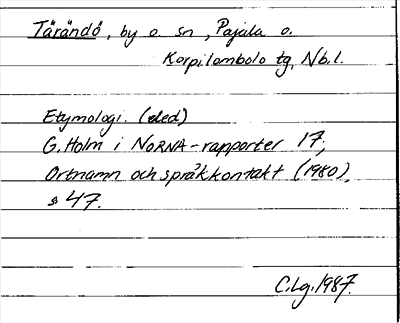 Tärändö, by o. sn, Pajala o.
Korpilombolo tg, Nb.l.
Etymologi. (sled)
G. Holm i NORNA-rapporter 17,
Ortnamn och språkkontakt (1980),
s 47.
C.Lg. 1987.